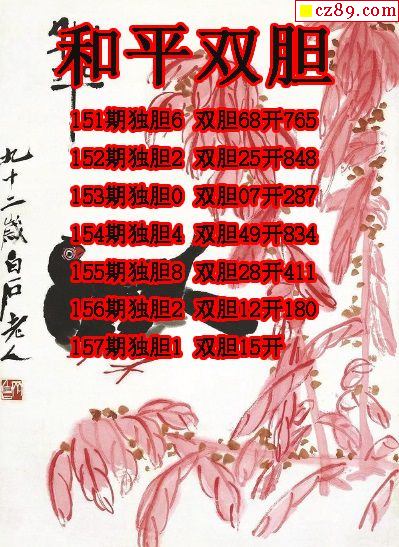 cz89.com
和平双胆
151期独胆6 双胆68开765
152期独胆2 双胆25开848
153期独胆0 双胆07开287
154期独胆4 双胆49开834
155期独胆8 双胆28开411
156期独胆2 双胆12开180
157期独胆1 双胆15开
九十二歲白石老人